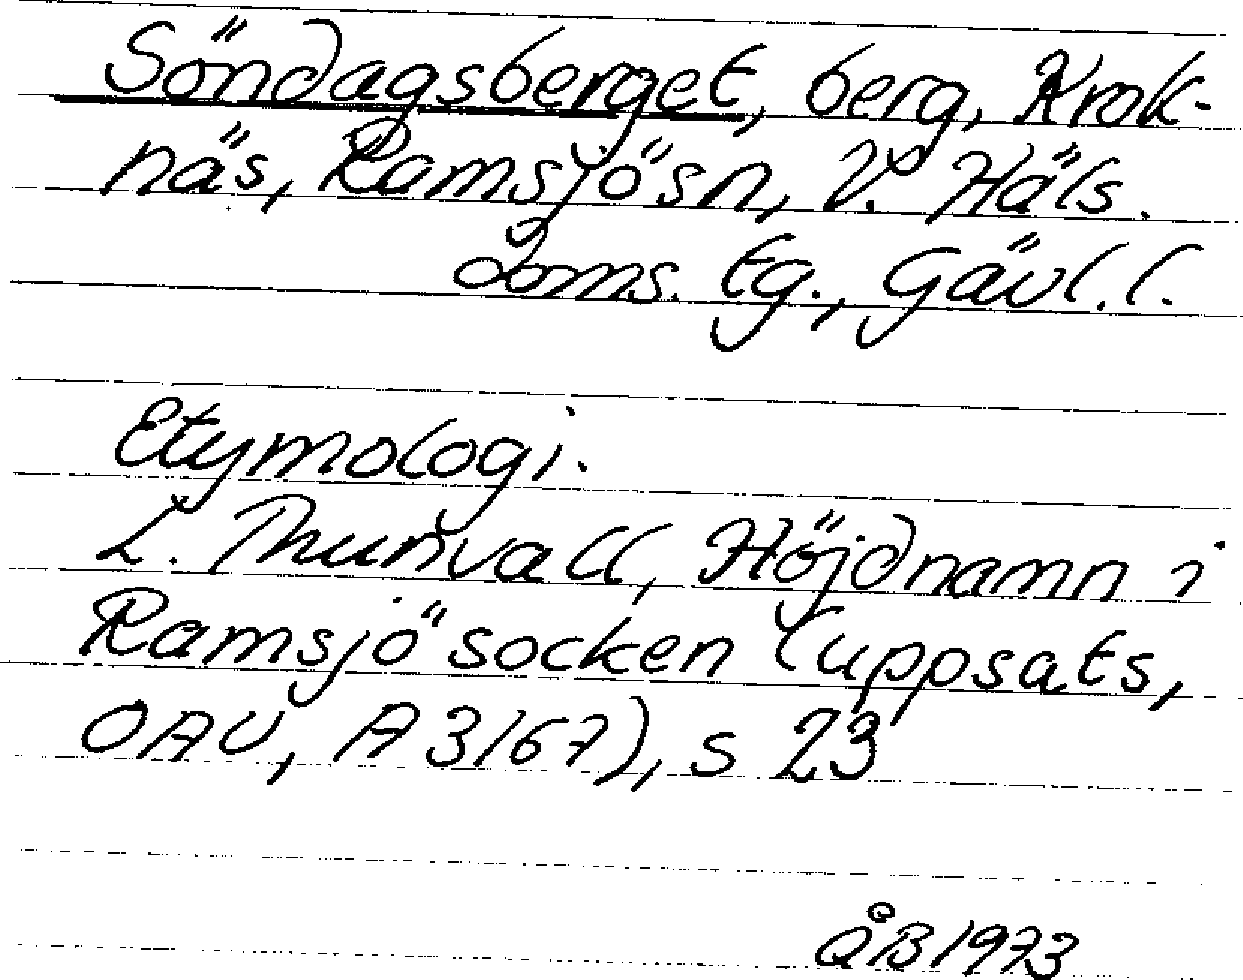 Söndagsberget, berg, Krok-
näs, Ramsjösn, V. Häls.
doms. tg., Gävl. l.
Etymologi.
L. Thunvall, Höjdnamn i
Ramsjö socken (uppsats,
OAU, A 3167), s 23
ÅB 1973